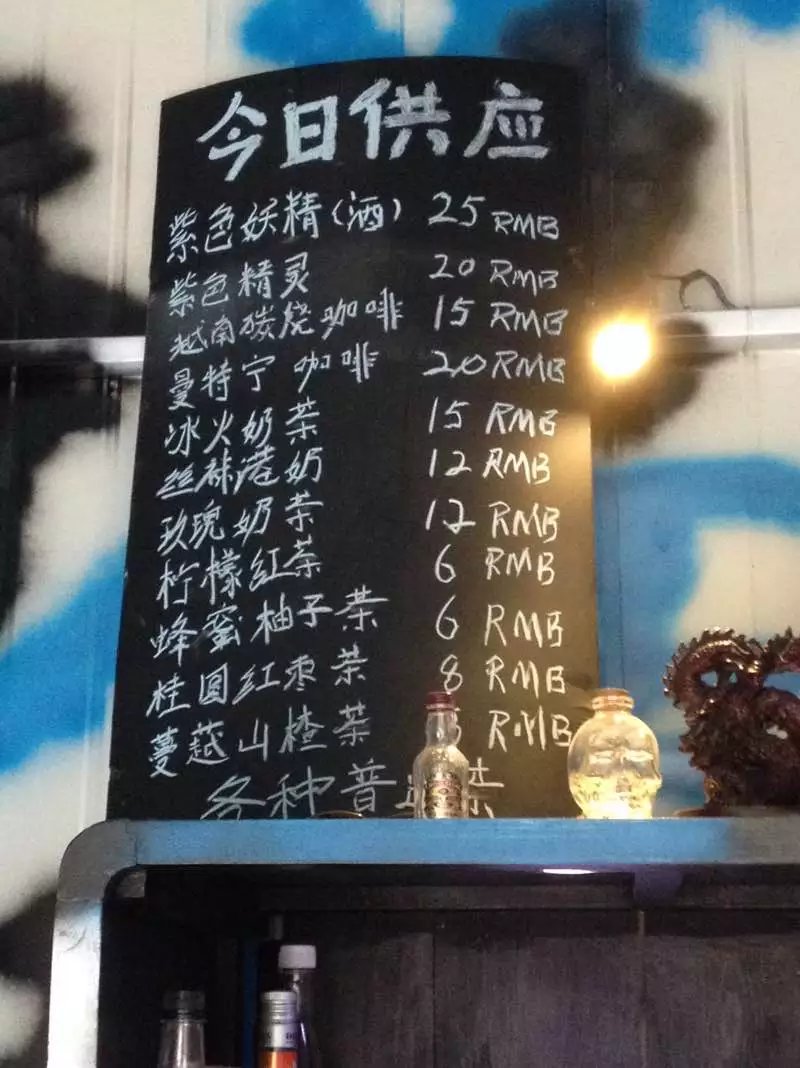 今日供应
紫色妖精(酒) 25 RMB
紫色精灵 20 RMB
越南碳烧咖啡 15 RMB
曼特宁咖啡 20 RMB
冰火奶茶 15 RMB
丝袜港奶 12 RMB
玫瑰奶茶 12 RMB
柠檬红茶 6 RMB
蜂蜜柚子茶 6 RMB
桂圆红枣茶 8 RMB
蔓越山楂茶 RMB
各种普 茶